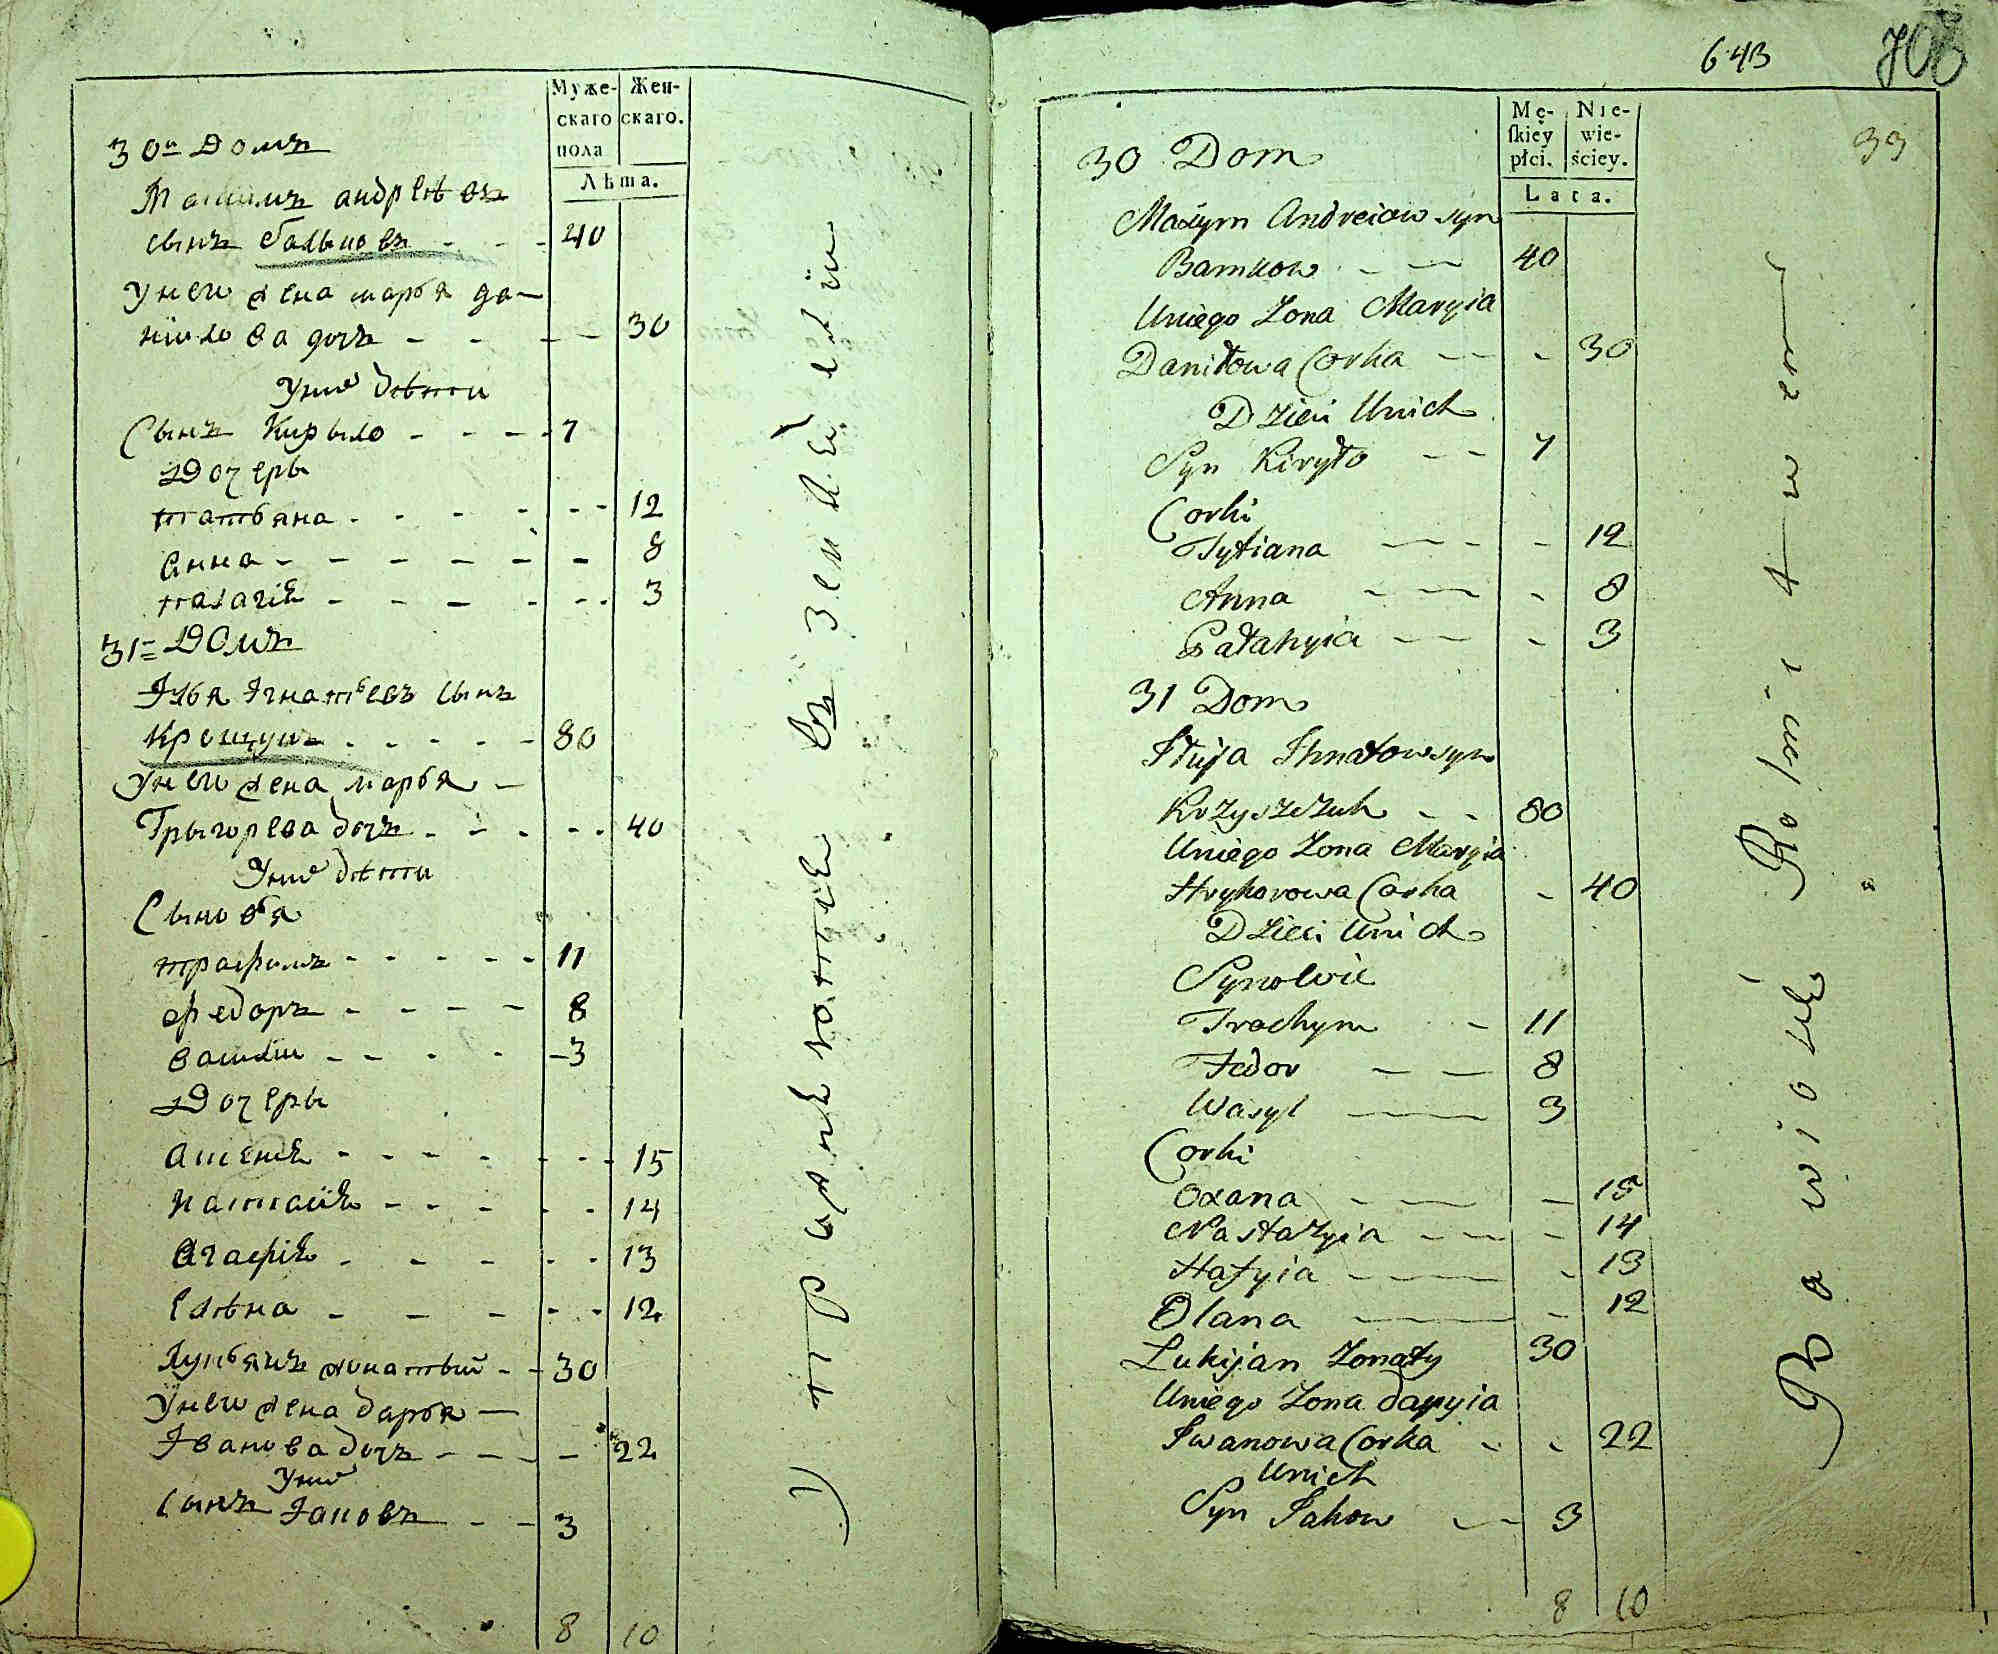 Муже-
скаго
пола
Жен-
скаго.
Лѣта.
30й Домъ
Андрѣевъ
сынъ - - - 40
У него жена марья да-
нилова дочъ - - - - 30
У нихъ дѣти
Сынъ Кирыло - - - - 7
Дочеры
татьяна - - - - - - 12
Анна - - - - - - - 8
палагія - - - - - - 3
31й Домъ
Ілья Ігнатьевъ сынъ
- - - - - 80
У него жена марья -
Грыгорева дочъ - - - - - 40
У нихъ дѣти
Сыновья
трафимъ - - - - - 11
федоръ - - - - 8
василь - - - - - 3
Дочеры
- - - - - - - 15
- - - - - 14
Агафія - - - - - 13
Елѣна - - - - - 12
Лукьянъ жонатый - - 30
У него жена дарья —
Іванова дочъ - - - - 22
У нихъ
сынъ Іаковъ - - 3
8 10
643
33
Mę-
ſkiey
płci.
Nie-
wie-
ściey.
Lata.
30 Dom
Maxym Andreiow syn
- - 40
Uniego Zona Maryia
Daniłowa Corka - - - 30
Dzieci Unich
Syn Kiryło - - 7
Corki
Tytiana - - - - 12
Anna - - - - 8
Pałahyia - - - 3
31 Dom
Iłiya Ihnatow syn
Krzyszczuk - - 80
Uniego Zona Maryia
Hryhorowa Corka - 40
Dzieci Unich
Synowie
Trochym - 11
Fedor - - 8
Wasyl - - 3
Corki
Oxana - - - 15
Nastazyia - - - - 14
Hafyia - - - 13
Olana - - 12
Lukijan Zonaty 30
Uniego Zona daryia
Iwanowa Corka - - 22
Unich
Syn Jakow - - 3
8 10